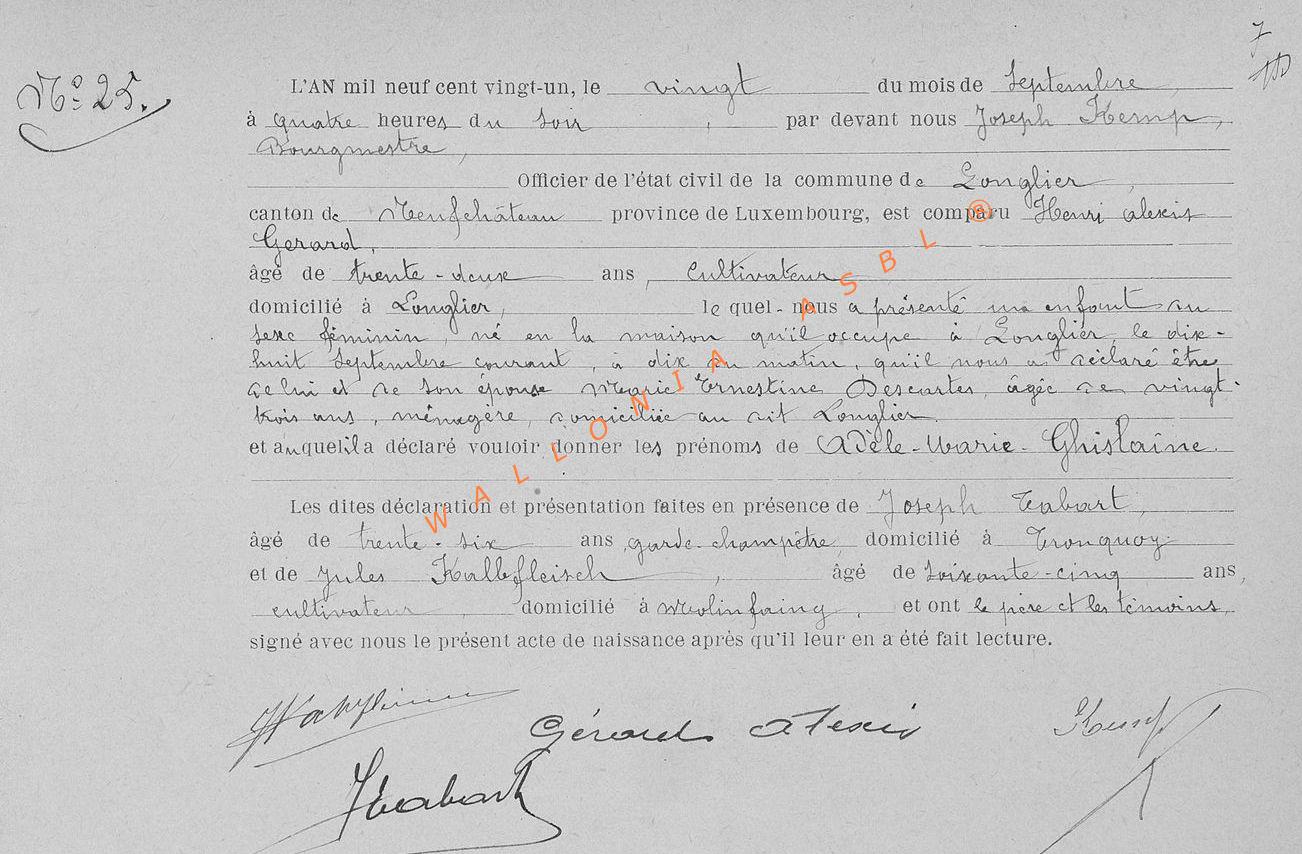 7
N° 25.
L'AN mil neuf cent vingt-un, le vingt du mois de Septembre,
à quatre heures du soir, par devant nous Joseph Kemp,
Bourgmestre,
Officier de l'état civil de la commune de Longlier,
canton de Neufchâteau province de Luxembourg, est comparu Henri alexis
Gerard,
âgé de trente-deux ans, cultivateur
domicilié à Longlier, le quel nous a présenté un enfant du
sexe féminin, né en la maison qu'il occupe à Longlier, le dix-
huit Septembre courant, à dix du matin, qu'il nous a déclaré être
de lui et de son épouse Marie Ernestine Descartes, âgée de vingt-
trois ans, ménagère, domiciliée au dit Longlier.
et auquel il a déclaré vouloir donner les prénoms de Adèle-Marie-Ghislaine.
Les dites déclaration et présentation faites en présence de Joseph Tabart
âgé de trente-six ans, garde-champêtre, domicilié à Tronquoy
et de Jules Kalbfleisch, âgé de soixante-cinq ans,
cultivateur, domicilié à Molinfaing, et ont le père et les témoins,
signé avec nous le présent acte de naissance après qu'il leur en a été fait lecture.
WALLONIA ASBL ®
Gérard Alexis
Kemp
JTabart